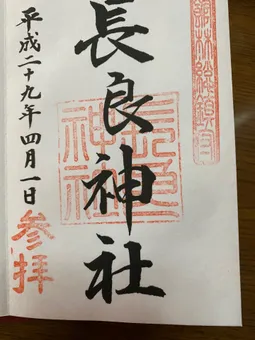 長良神社
長良神社
平成二十九年四月一日
参拝